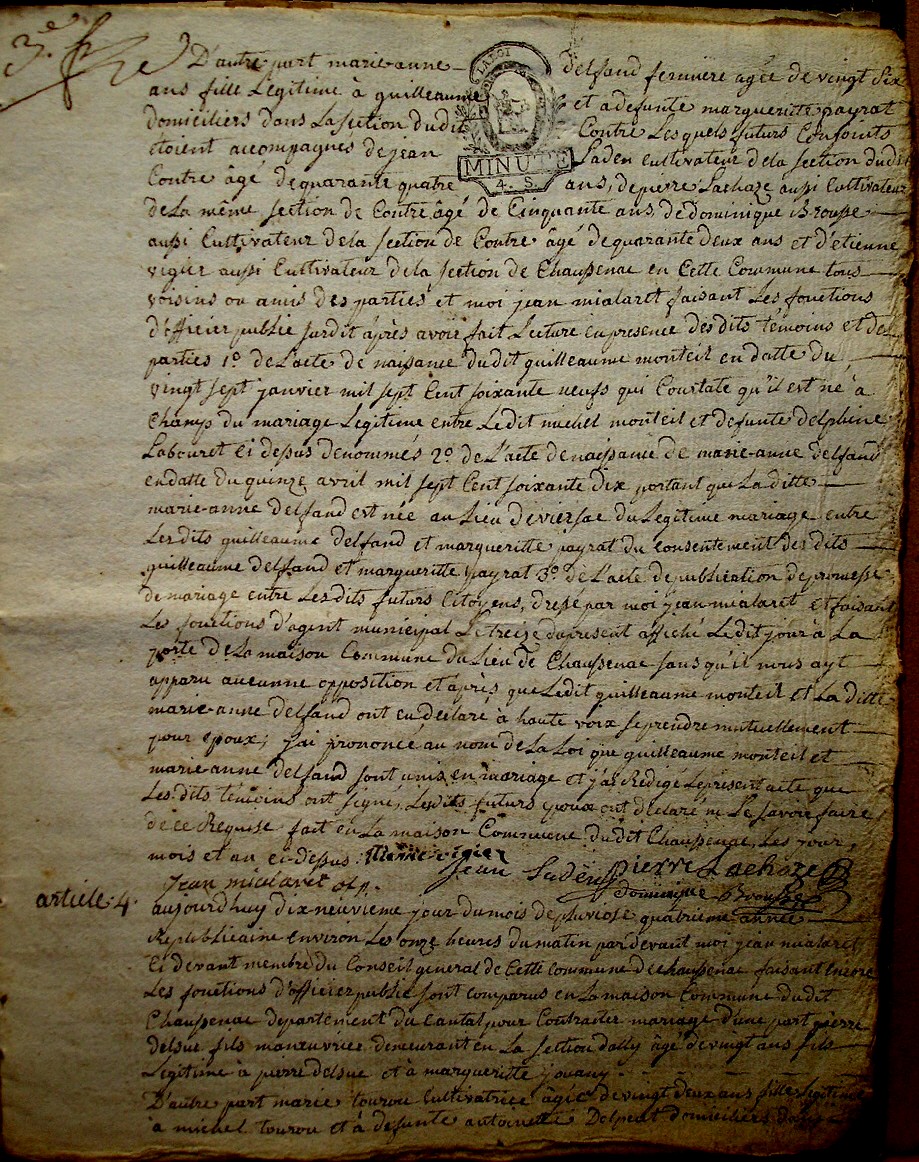 3.e f.lle
D'autre part marie-anne delfand fermiere agée de vingt six
ans fille Legitime à guilleaume et a defunte margueritte payrat
domiciliers dans La section du dit Contre Les quels futurs Conjoints
étoient accompagnés de jean Laden Cultivateur de la section du dit
Contre âgé de quarante quatre ans, de pierre Lachaze aussi Cultivateur
LA LOI
MINUTE
4. S.
de La même section de Contre âgé de Cinquante ans, de Dominique Brousse
aussi Cultivateur de la section de Contre âgé de quarante deux ans et d'etienne
vigier aussi Cultivateur de la section de Chaussenac en Cette Commune tous
voisins ou amis des parties et moi jean mialaret faisant Les fonctions
d'officier public susdit après avoir fait Lecture en presence des dits témoins et des
parties 1.º de L'acte de naissance du dit guilleaume monteil en datte du
vingt sept janvier mil sept Cent soixante neufs qui Constate qu'il est né à
Champs du mariage Legitime entre Le dit michel monteil et defunte delphine
Labouret ci dessus denommés 2.º de L'acte de naissance de marie-anne delfand
en datte du quinze avril mil sept Cent soixante dix portant que La ditte
marie-anne delfand est née au Lieu de viersac du Legitime mariage entre
Les dits guilleaume delfand et margueritte payrat du consentement des dits
guilleaume delfand et margueritte payrat 3.º de L'acte de publication de promesse
de mariage entre Les dits futurs Citoyens, dressé par moi jean mialaret et faisant
Les fonctions d'agent municipal Le treize du present affiché Le dit jour à La
porte de La maison Commune du Lieu de Chaussenac sans qu'il nous ayt
apparu aucunne opposition et après que Le dit guilleaume monteil et La ditte
marie-anne delfand ont eu declaré à haute voix se prendre mutuellement
pour epoux; j'ai prononcé au nom de La Loi que guilleaume monteil et
marie-anne delfand sont unis en mariage et j'ai Redigé Le present acte que
Les dits témoins ont signé, Les dits futurs epoux ont déclaré ne Le savoir faire
de ce Requise fait en La maison Commune du dit Chaussenac, Les jour,
mois et an ci-dessus. etienne vigier
jean Laden pierre Lachaze
Jean mialaret o.p. Dominique Brousse
article-4.
aujourd'huy dix neuvieme jour du mois de pluviose quatrieme année
Republicaine environ Les onze heures du matin par devant moi jean mialaret
Ci devant membre du Conseil general de Cette Commune de chaussenac faisant encore
Les fonctions d'officier public sont comparus en La maison Commune du dit
Chaussenac departement du Cantal pour Contracter mariage d'une part pierre
delsue fils manœuvrier demeurant en La section dally agé de vingt ans fils
Legitime à pierre delsue et à margueritte jouany.
D'autre part marie tourou Cultivatrice âgée de vingt deux ans fille Legitime
à michel tourou et à defunte antoinette Delpeut domiciliers